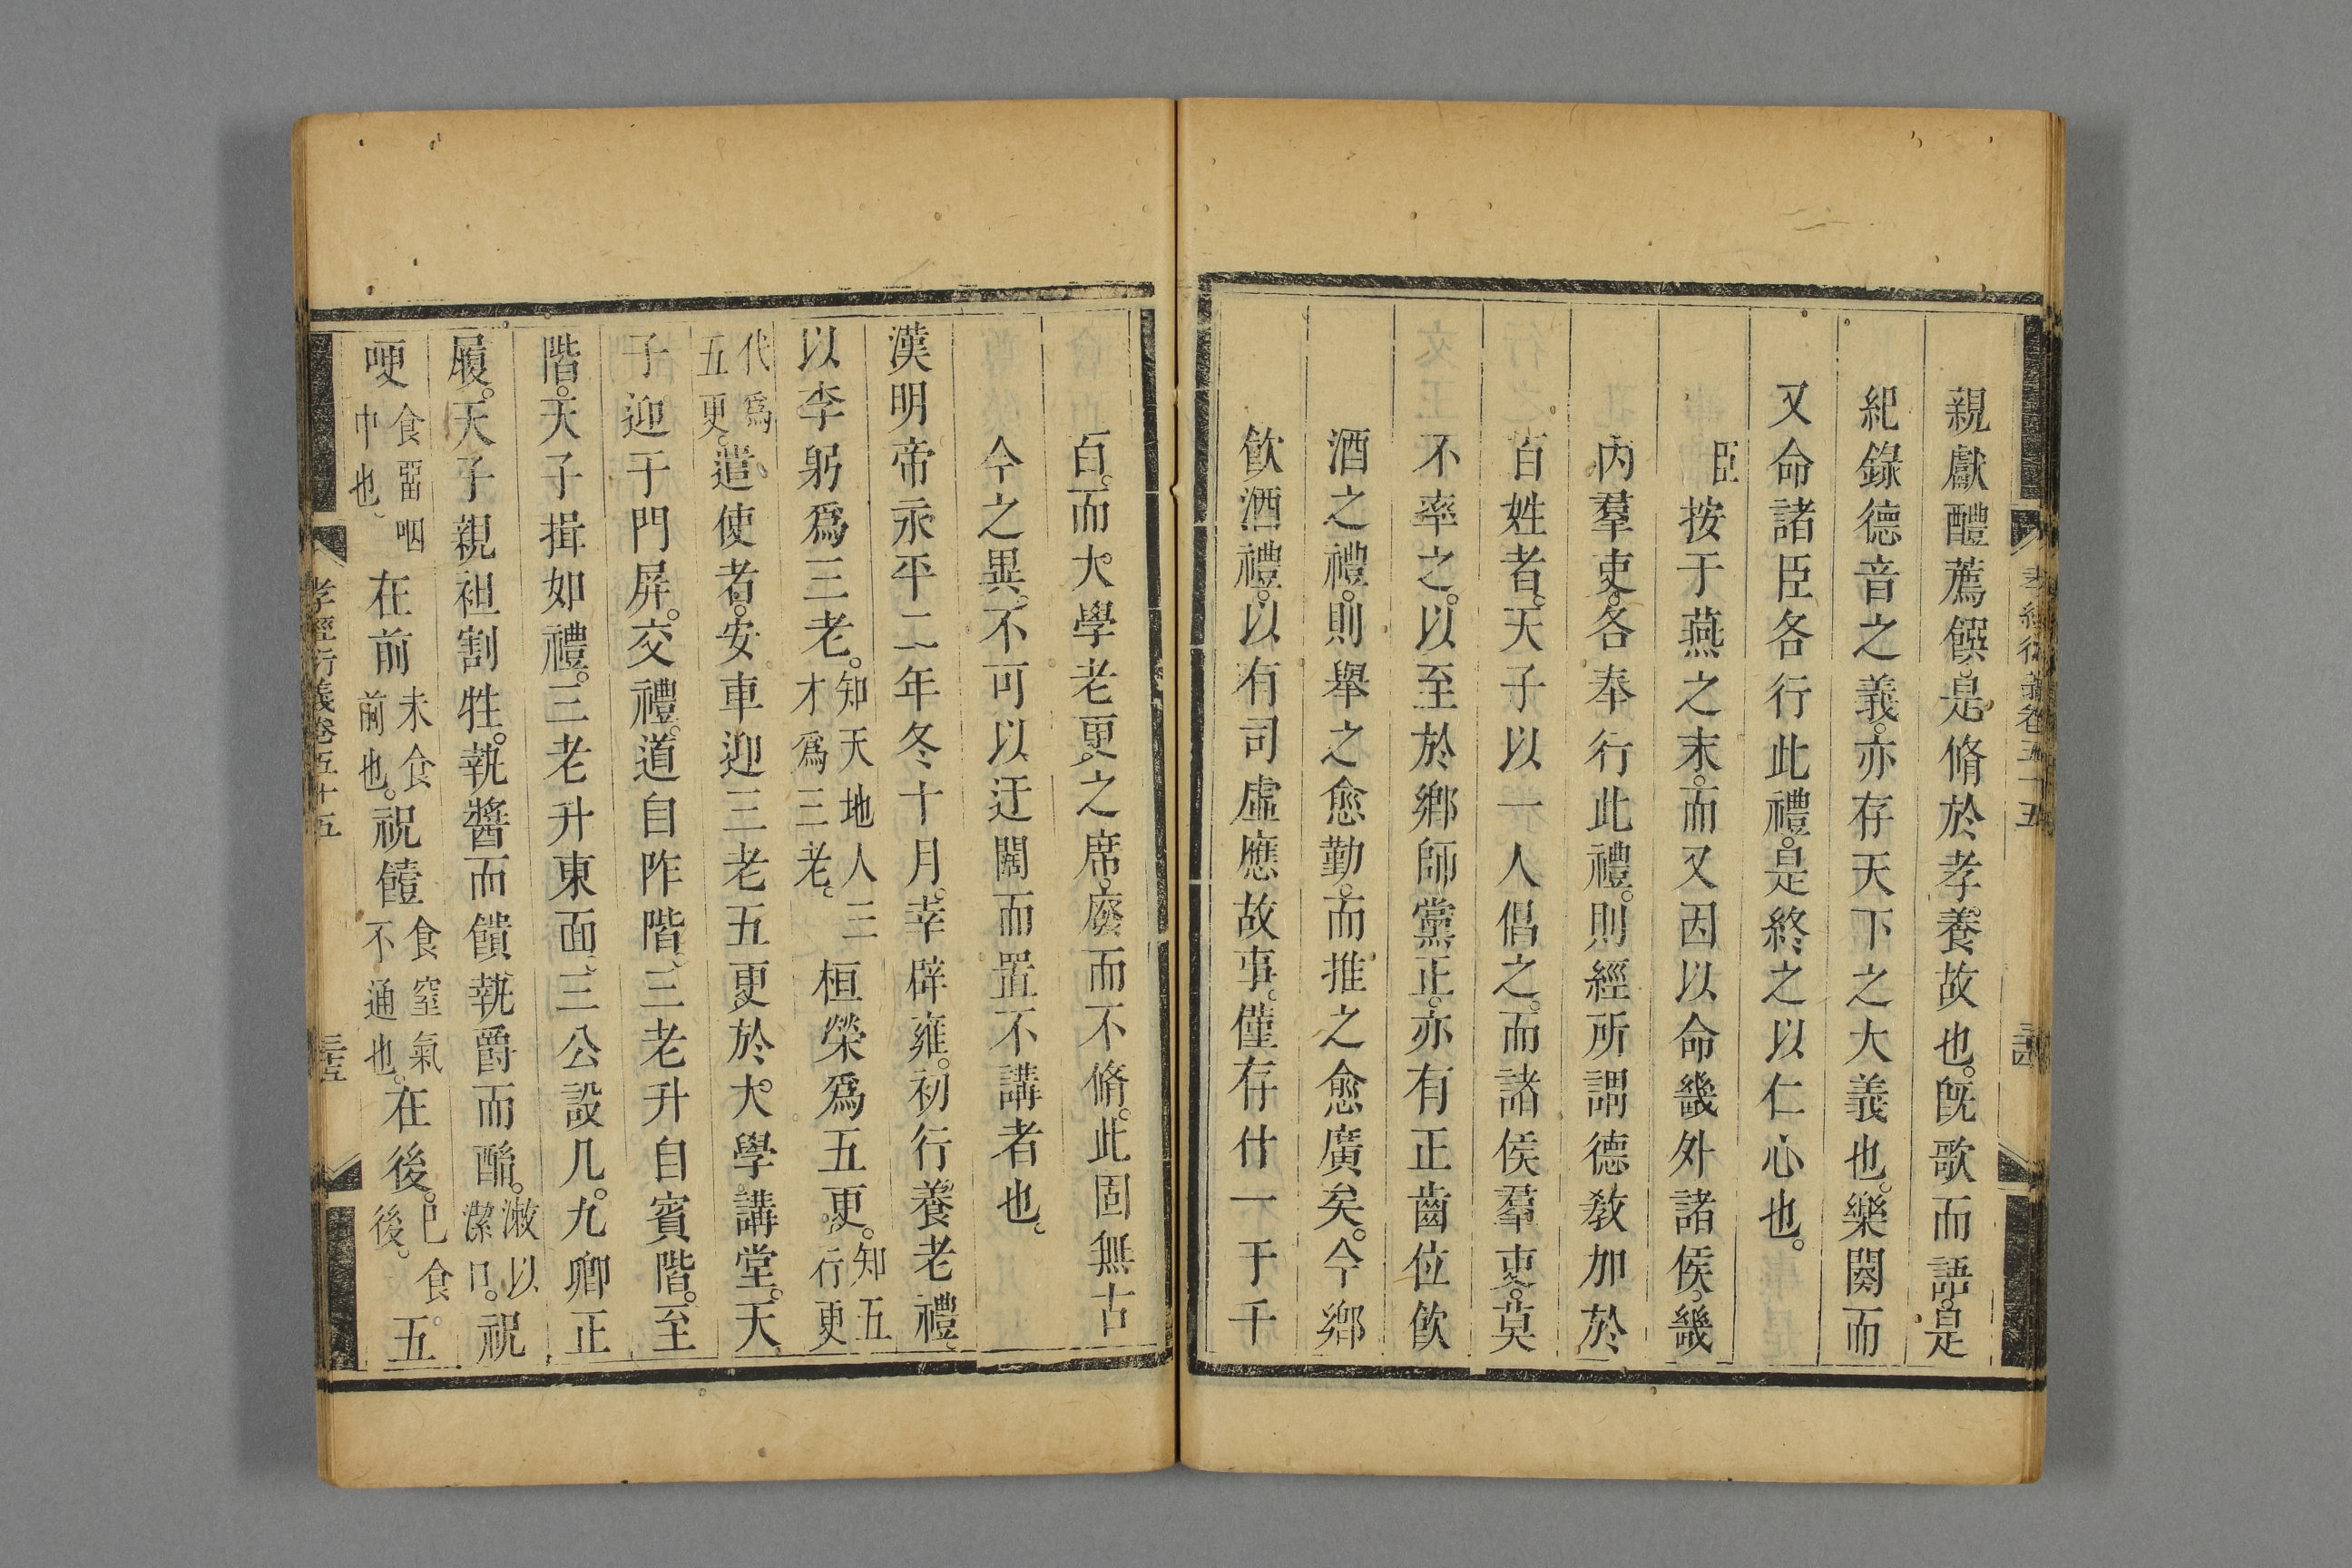 孝經衍義卷五十五
親獻醴薦饌。是脩於孝養故也。旣歌而語。是
紀錄德音之義。亦存天下之大義也。樂闋而
又命諸臣各行此禮。是終之以仁心也。
臣按于燕之末。而又因以命畿外諸侯。畿
內羣吏。各奉行此禮。則經所謂德敎加於
百姓者。天子以一人倡之。而諸侯羣吏。莫
不率之。以至於鄉師黨正。亦有正齒位飲
酒之禮。則舉之愈勤。而推之愈廣矣。今鄉
飲酒禮。以有司虛應故事。僅存什一于千
百。而大學老更之席。廢而不脩。此固無古
今之異。不可以迂闊而置不講者也。
漢明帝永平二年冬十月。幸辟雍。初行養老禮。
以李躬爲三老。知天地人三才爲三老。桓榮爲五更。知五行更
代爲五更。遣使者。安車迎三老五更於大學講堂。天
子迎于門屏。交禮。道自阼階。三老升自賓階。至
階。天子揖如禮。三老升東面。三公設几。九卿正
履。天子親袒割牲。執醬而饋。執爵而酳。漱以潔口。祝
哽食畱咽中也。在前未食前也。祝饐食窒氣不通也。在後。已食後。五
孝經衍義卷五十五 三五